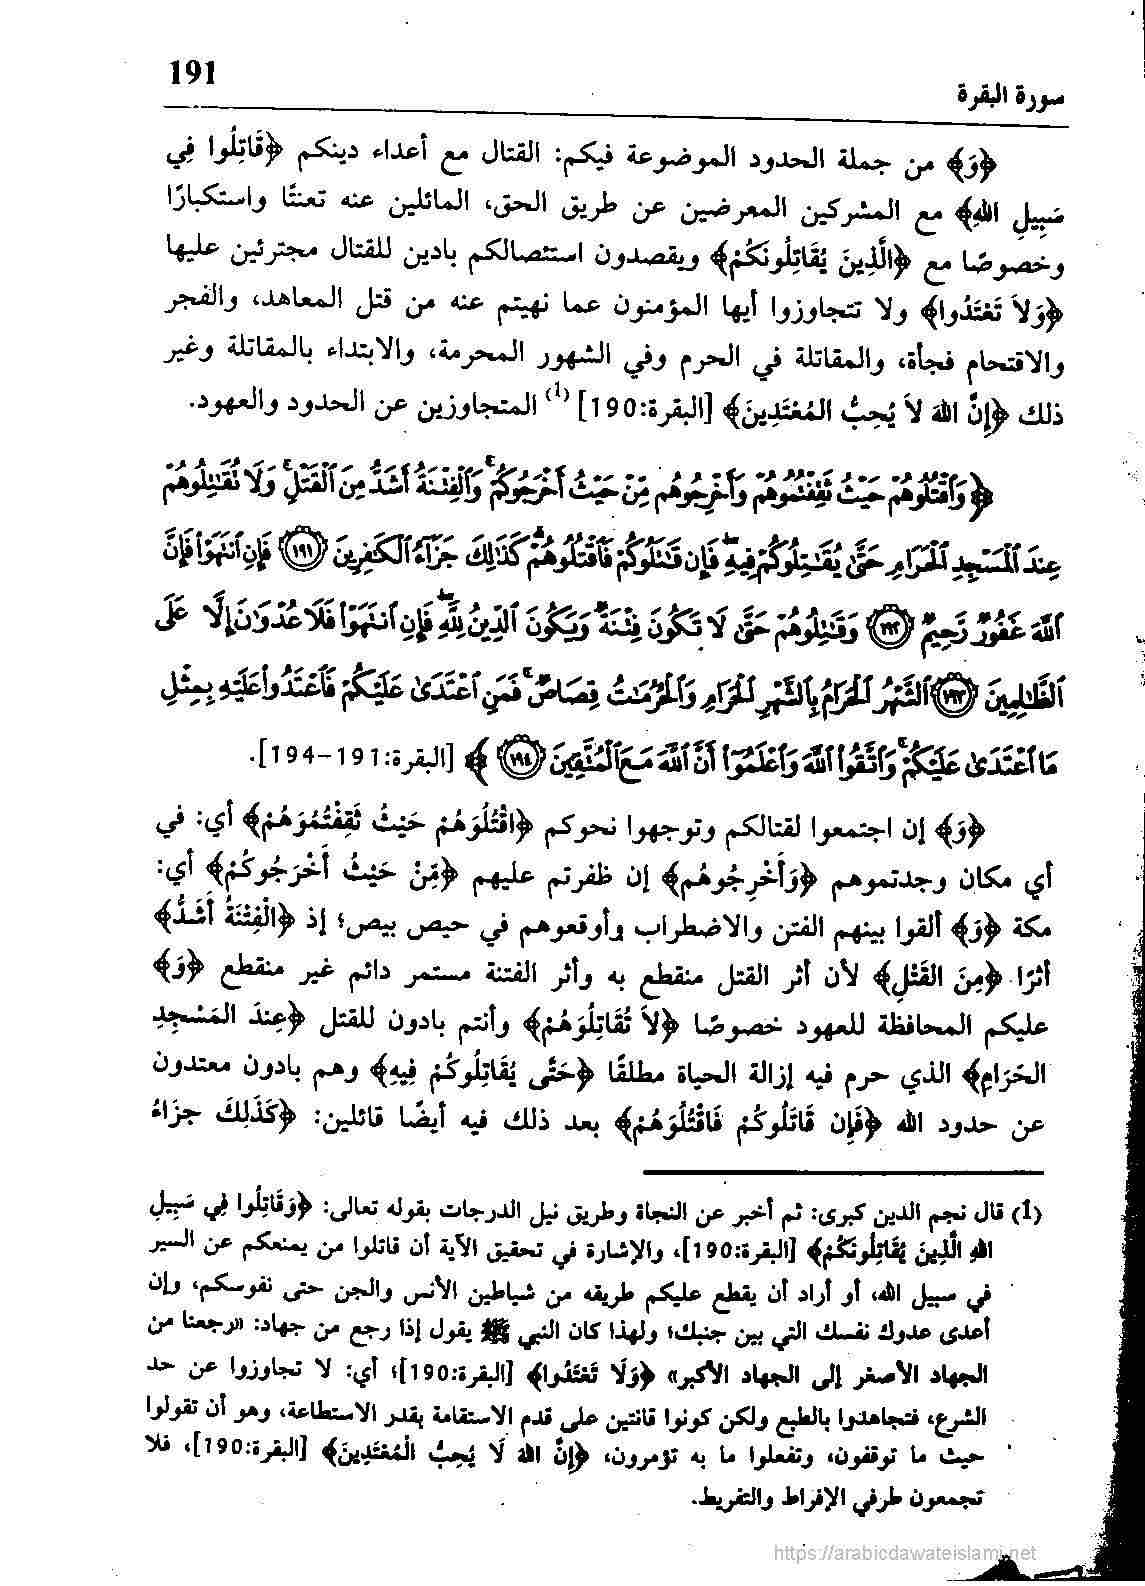 191
سورة البقرة
﴿وَ﴾ من جملة الحدود الموضوعة فيكم: القتال مع أعداء دينكم ﴿قَاتِلُوا فِي
سَبِيلِ اللهِ﴾ مع المشركين المعرضين عن طريق الحق، المائلين عنه تعنتًا واستكبارًا
وخصوصًا مع ﴿الَّذِينَ يُقَاتِلُونَكُمْ﴾ ويقصدون استئصالكم بادين للقتال مجترئين عليها
﴿وَلاَ تَعْتَدُوا﴾ ولا تتجاوزوا أيها المؤمنون عما نهيتم عنه من قتل المعاهد، والفجر
والاقتحام فجأة، والمقاتلة في الحرم وفي الشهور المحرمة، والابتداء بالمقاتلة وغير
ذلك ﴿إِنَّ اللهَ لاَ يُحِبُّ المُعْتَدِينَ﴾ [البقرة:190] (1) المتجاوزين عن الحدود والعهود.
﴿وَٱقْتُلُوهُمْ حَيْثُ ثَقِفْتُمُوهُمْ وَأَخْرِجُوهُم مِّنْ حَيْثُ أَخْرَجُوكُمْ ۚ وَٱلْفِتْنَةُ أَشَدُّ مِنَ ٱلْقَتْلِ ۚ وَلَا تُقَٰتِلُوهُمْ
عِندَ ٱلْمَسْجِدِ ٱلْحَرَامِ حَتَّىٰ يُقَٰتِلُوكُمْ فِيهِ ۖ فَإِن قَٰتَلُوكُمْ فَٱقْتُلُوهُمْ ۗ كَذَٰلِكَ جَزَآءُ ٱلْكَٰفِرِينَ ١٩١ فَإِنِ ٱنتَهَوْا۟ فَإِنَّ
ٱللَّهَ غَفُورٌ رَّحِيمٌ ١٩٢ وَقَٰتِلُوهُمْ حَتَّىٰ لَا تَكُونَ فِتْنَةٌ وَيَكُونَ ٱلدِّينُ لِلَّهِ ۖ فَإِنِ ٱنتَهَوْا۟ فَلَا عُدْوَٰنَ إِلَّا عَلَى
ٱلظَّٰلِمِينَ ١٩٣ ٱلشَّهْرُ ٱلْحَرَامُ بِٱلشَّهْرِ ٱلْحَرَامِ وَٱلْحُرُمَٰتُ قِصَاصٌ ۚ فَمَنِ ٱعْتَدَىٰ عَلَيْكُمْ فَٱعْتَدُوا۟ عَلَيْهِ بِمِثْلِ
مَا ٱعْتَدَىٰ عَلَيْكُمْ ۚ وَٱتَّقُوا۟ ٱللَّهَ وَٱعْلَمُوٓا۟ أَنَّ ٱللَّهَ مَعَ ٱلْمُتَّقِينَ ١٩٤ ﴾ [البقرة:191-194].
﴿وَ﴾ إن اجتمعوا لقتالكم وتوجهوا نحوكم ﴿اقْتُلُوَهُمْ حَيْثُ ثَقِفْتُمُوَهُمْ﴾ أي: في
أي مكان وجدتموهم ﴿وَأَخْرِجُوهُم﴾ إن ظفرتم عليهم ﴿مِّنْ حَيْثُ أَخْرَجُوكُمْ﴾ أي:
مكة ﴿وَ﴾ ألقوا بينهم الفتن والاضطراب وأوقعوهم في حيص بيص؛ إذ ﴿الْفِتْنَةُ أَشَدُّ﴾
أثرًا ﴿مِنَ القَتْلِ﴾ لأن أثر القتل منقطع به وأثر الفتنة مستمر دائم غير منقطع ﴿وَ﴾
عليكم المحافظة للعهود خصوصًا ﴿لاَ تُقَاتِلُوَهُمْ﴾ وأنتم بادون للقتل ﴿عِندَ المَسْجِدِ
الحَرَامِ﴾ الذي حرم فيه إزالة الحياة مطلقًا ﴿حَتَّى يُقَاتِلُوكُمْ فِيهِ﴾ وهم بادون معتدون
عن حدود الله ﴿فَإِن قَاتَلُوكُمْ فَاقْتُلُوَهُمْ﴾ بعد ذلك فيه أيضًا قائلين: ﴿كَذَلِكَ جزَاءُ
(1) قال نجم الدين كبرى: ثم أخبر عن النجاة وطريق نيل الدرجات بقوله تعالى: ﴿وَقَاتِلُوا فِي سَبِيلِ
اللهِ الَّذِينَ يُقَاتِلُونَكُمْ﴾ [البقرة:190]، والإشارة في تحقيق الآية أن قاتلوا من يمنعكم عن السير
في سبيل الله، أو أراد أن يقطع عليكم طريقه من شياطين الأنس والجن حتى نفوسكم، وإن
أعدى عدوك نفسك التي بين جنبك؛ ولهذا كان النبي ﷺ يقول إذا رجع من جهاد: «رجعنا من
الجهاد الأصغر إلى الجهاد الأكبر» ﴿وَلَا تَعْتَدُوا﴾ [البقرة:190]؛ أي: لا تجاوزوا عن حد
الشرع، فتجاهدوا بالطبع ولكن كونوا قانتين على قدم الاستقامة بقدر الاستطاعة، وهو أن تقولوا
حيث ما توقفون، وتفعلوا ما به تؤمرون، ﴿إِنَّ اللهَ لَا يُحِبُّ الْمُعْتَدِينَ﴾ [البقرة:190]، فلا
تجمعون طرفي الإفراط والتفريط.
https://arabicdawateislami.net